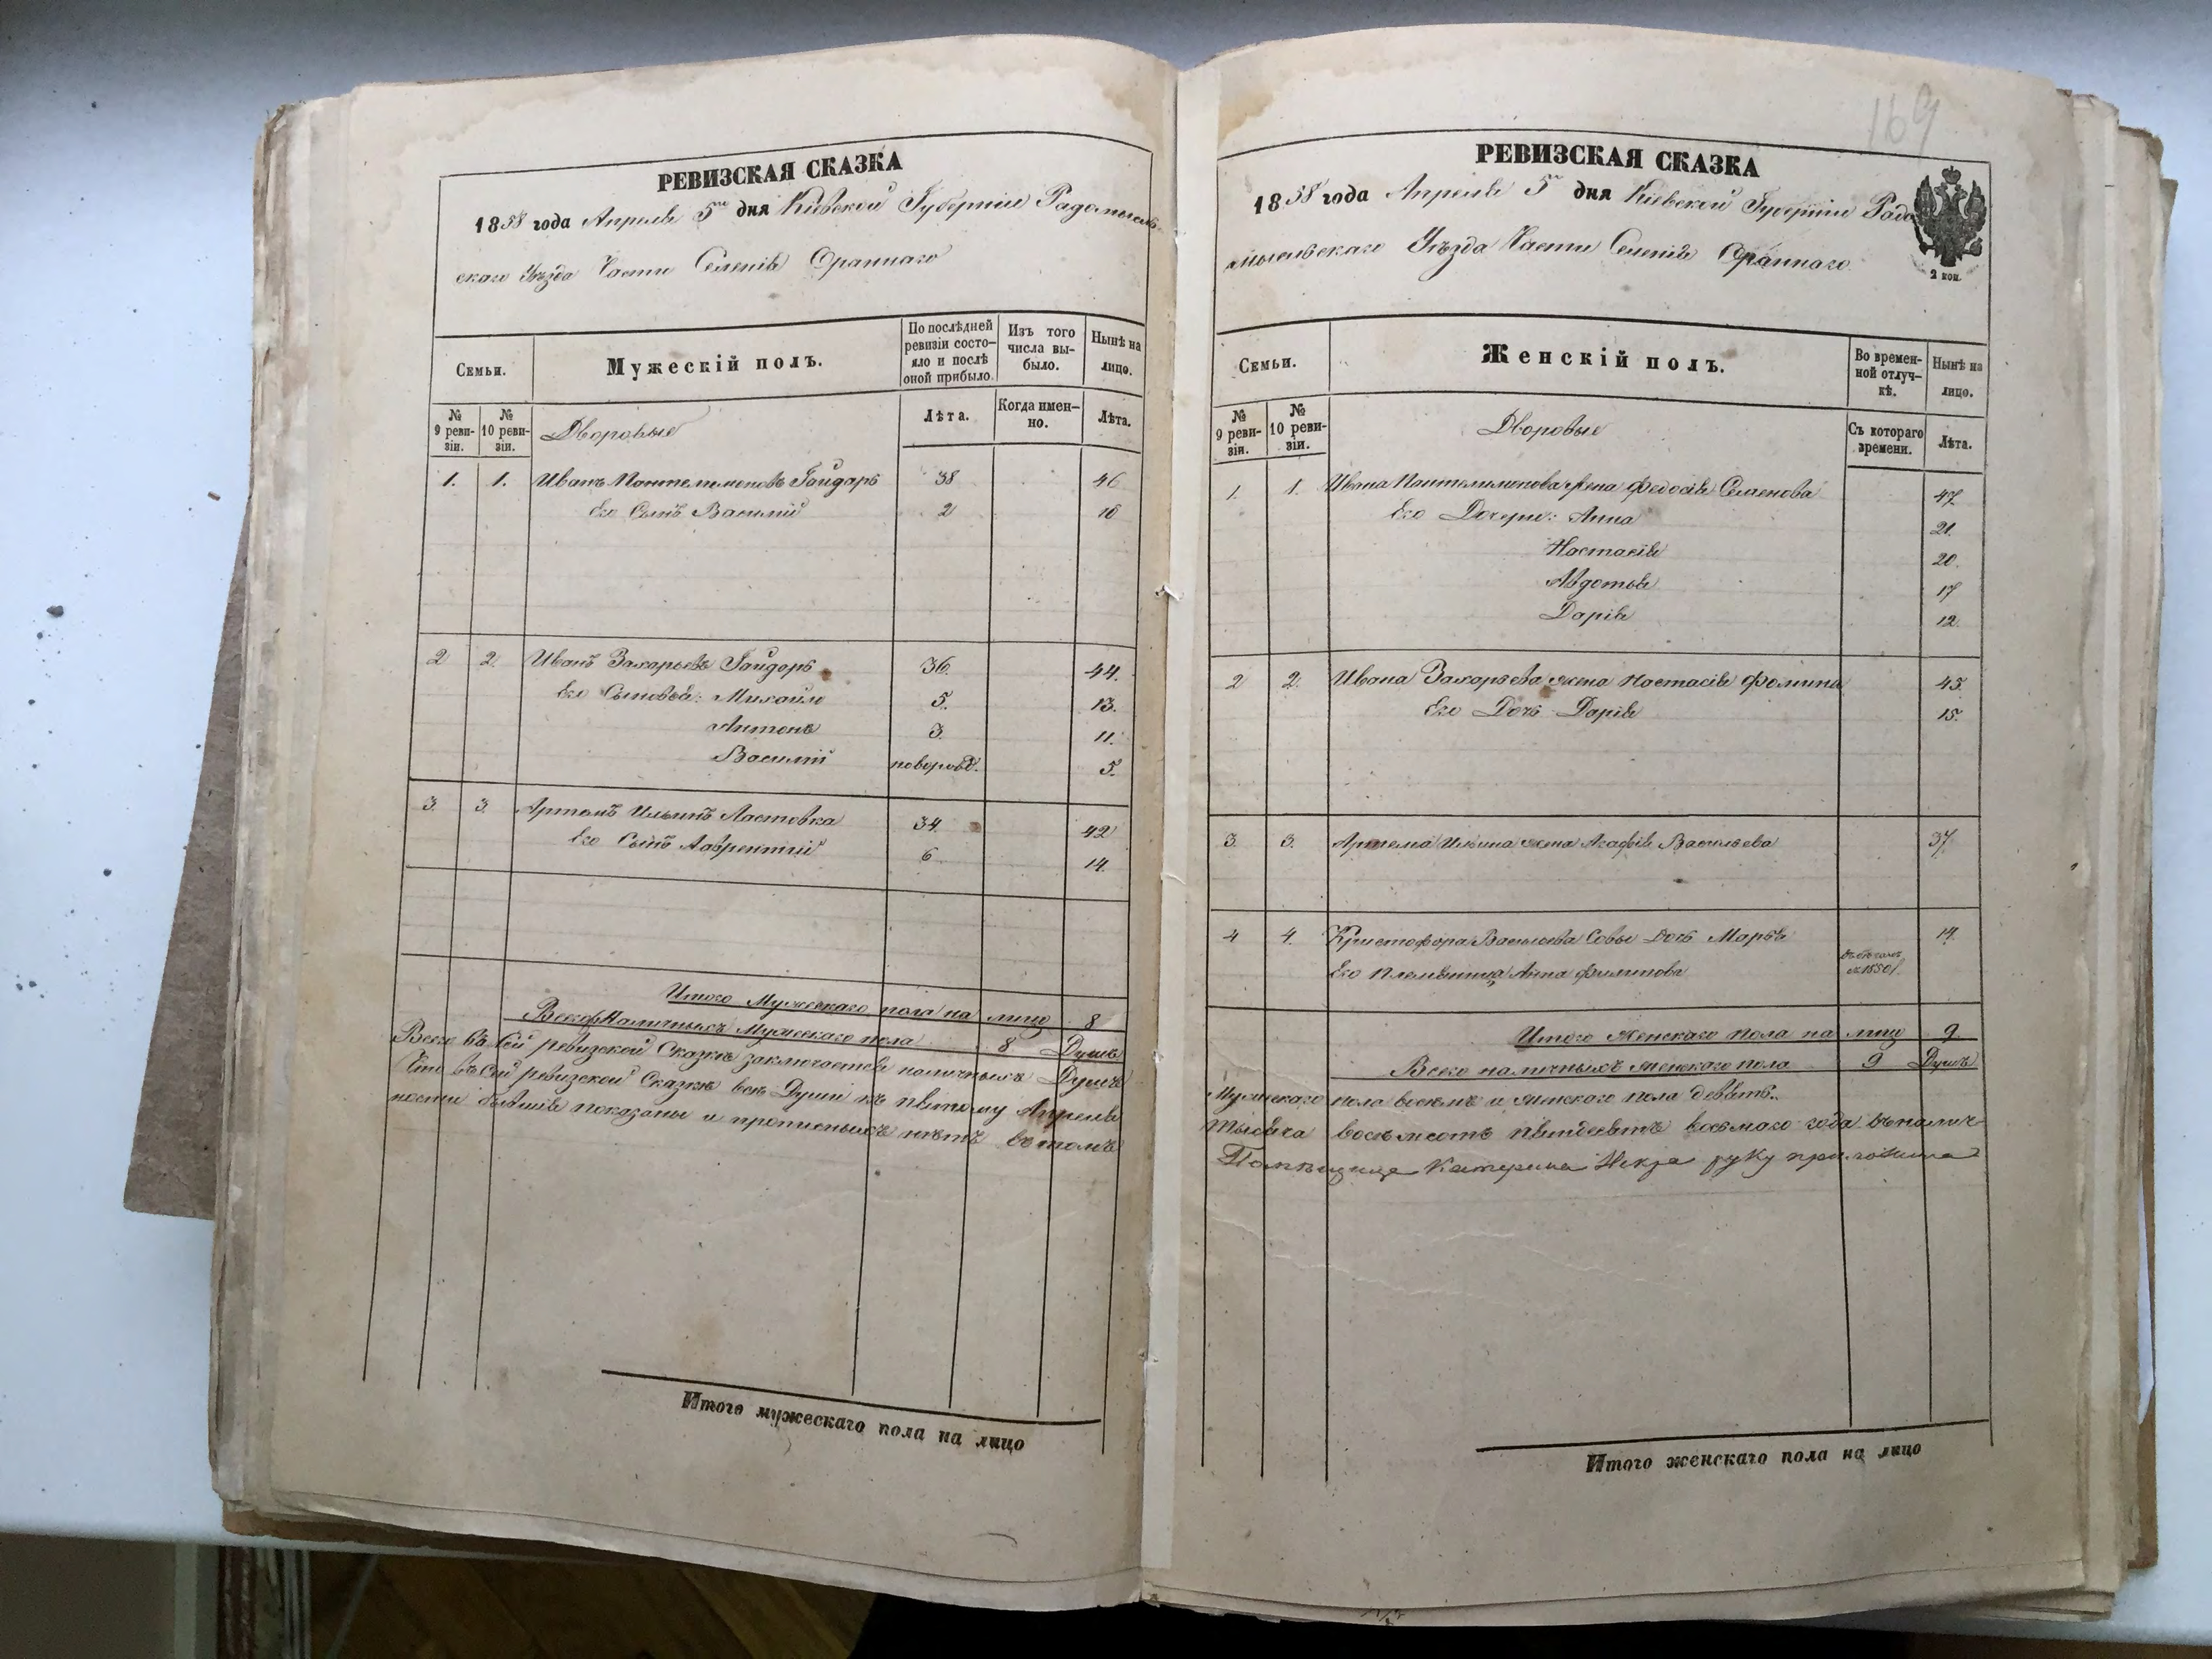 169
РЕВИЗСКАЯ СКАЗКА
1858 года Апреля 5го дня Кіевской Губерніи Радомысль-
скаго Уѣзда Части Селенія Ораннаго
Семьи.
Мужескій полъ.
По послѣдней ревизіи состо-
яло и послѣ оной прибыло.
Изъ того числа вы-
было.
Нынѣ на лицо.
№ 9 реви-
зіи.
№ 10 реви-
зіи.
Дворовые
Лѣта.
Когда имен-
но.
Лѣта.
1. 1. Иванъ Пантелимоновъ Гайдаръ 38 46
Его Сынъ Василій 2 10
2 2. Иванъ Захарьевъ Гайдаръ 36. 44.
Его Сыновья: Михайло 5. 13.
Антонъ 3. 11.
Василій новорожд. 5.
3. 3. Артемъ Ильинъ Ластовка 34. 42
Его Сынъ Лаврентій 6 14.
Итого Мужескаго пола на лицо 8
Всего Наличныхъ Мужескаго пола 8 Душъ
Всего въ сей ревизской Сказкѣ заключается наличныхъ Душъ
Что въ сей ревизской Сказкѣ всѣ Души къ пятому Апреля
ности бывшія показаны и прописныхъ нѣтъ въ томъ
Итого мужескаго пола на лицо
РЕВИЗСКАЯ СКАЗКА
1858 года Апреля 5го дня Кіевской Губерніи Радо
мысльскаго Уѣзда Части Селенія Ораннаго
2 коп.
Семьи.
Женскій полъ.
Во времен-
ной отлуч-
кѣ.
Нынѣ на лицо.
№ 9 реви-
зіи.
№ 10 реви-
зіи.
Дворовые
Съ котораго времени.
Лѣта.
1. 1. Ивана Пантелимонова жена Федосія Семенова 47.
Его Дочери: Анна 21.
Настасія 20.
Авдотья 17
Дарія 12.
2 2. Ивана Захарьева жена Настасія Фомина 45.
Его Дочь Дарія 15.
3. 3. Артема Ильина жена Агафія Васильева 37.
4 4. Христофора Васильева Совы Дочь Марья 14.
Его Племянница Анна Филипова съ 1850 г.
Итого Женскаго пола на лицо 9
Всего наличныхъ женскаго пола 9 Душъ
Мужескаго пола восемь и женскаго пола девять.
тысяча восемьсотъ пятдесятъ восьмаго года въ налич-
Помѣщица Катерина руку приложила
Итого женскаго пола на лицо